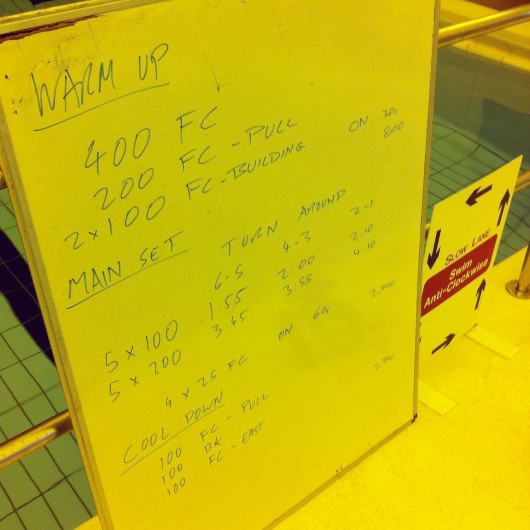 WARM UP
400 FC
200 FC - PULL
2 x 100 FC - BUILDING ON 20s
800
MAIN SET TURN AROUND
6-5 4-3 2-1
5 x 100 1:55 2:00 2:10
5 x 200 3:45 3:55 4:10
4 x 25 FC ON 60s
2,400
COOL DOWN
100 FC - PULL
100 BK
100 FC - EASY
2,700
SLOW LANE
Swim
Anti-Clockwise